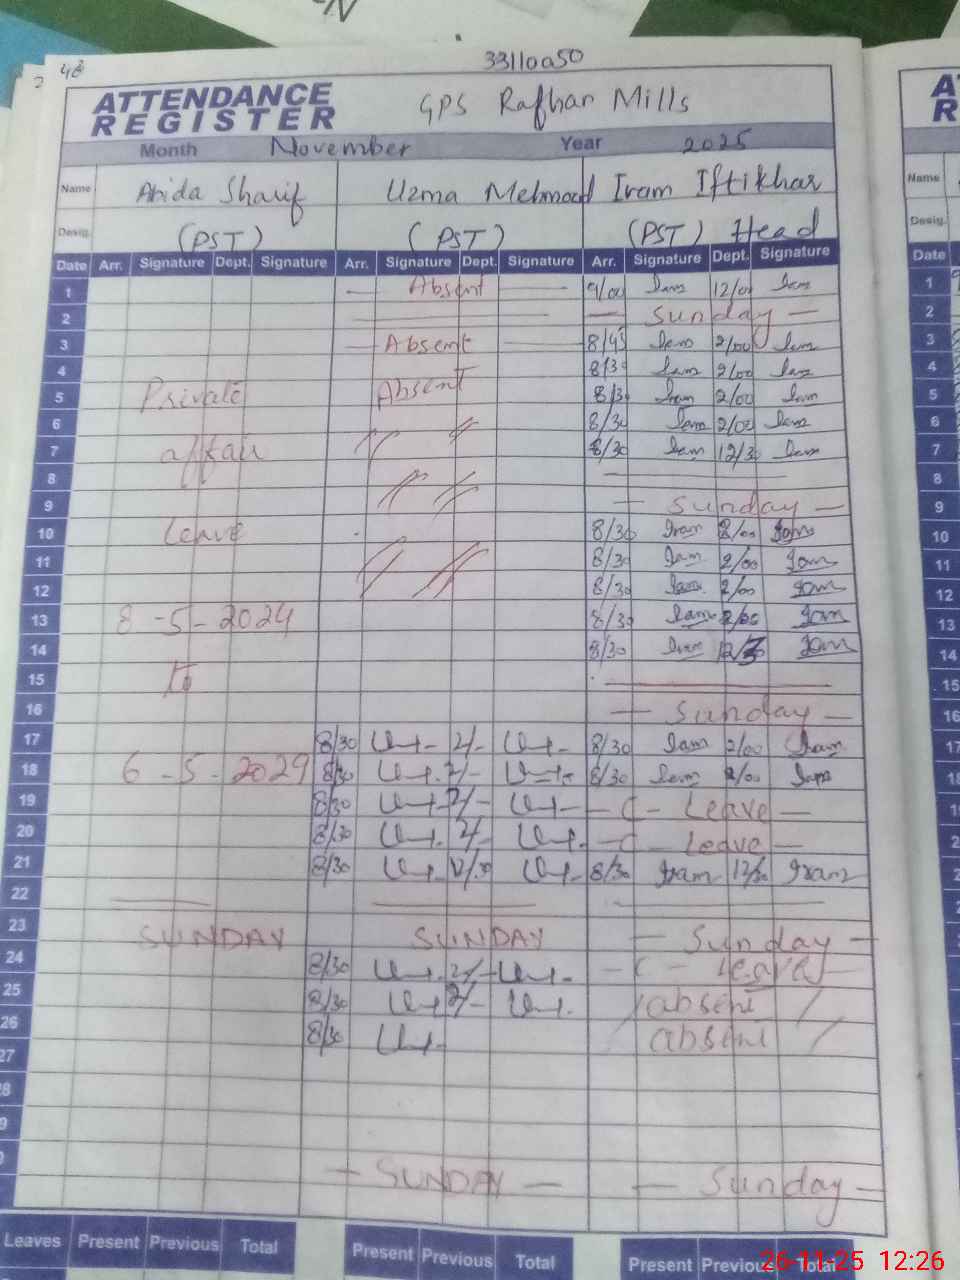 48
2
33110050
ATTENDANCE
REGISTER
GPS Rafhan Mills
Month November Year 2025
Name Abida Sharif Uzma Mehmood Iram Iftikhar
Desig. (PST) (PST) (PST) Head
Date Arr. Signature Dept. Signature Arr. Signature Dept. Signature Arr. Signature Dept. Signature
1 Absent 9/00 Iram 12/00 Iram
2 Sunday
3 Absent 8/45 Iram 2/00 Iram
4 8/30 Iram 2/00 Iram
5 Private Absent 8/30 Iram 2/00 Iram
6 8/30 Iram 2/00 Iram
7 affair 8/30 Iram 12/30 Iram
8
9 Sunday
10 Leave 8/30 Iram 2/00 Iram
11 8/30 Iram 2/00 Iram
12 8/30 Iram 2/00 Iram
13 8-5-2024 8/30 Iram 2/00 Iram
14 8/30 Iram 12/30 Iram
15 to
16 Sunday
17 8/30 2/- 8/30 Iram 2/00 Iram
18 6-5-2029 8/30 2/- 8/30 Iram 2/00 Iram
19 8/30 2/- - C - Leave -
20 8/30 2/- - C - Leave -
21 8/30 12/30 8/30 Iram 12/30 Iram
22
23 SUNDAY SUNDAY Sunday
24 8/30 2/- - C - Leave
25 8/30 2/- absent
26 8/30 absent
27
8
9
0 SUNDAY Sunday
Leaves Present Previous Total Present Previous Total Present Previous Total
A
R
Name
Desig.
Date
1
2
3
4
5
6
7
8
9
10
11
12
13
14
15
16
17
18
26-11-25 12:26